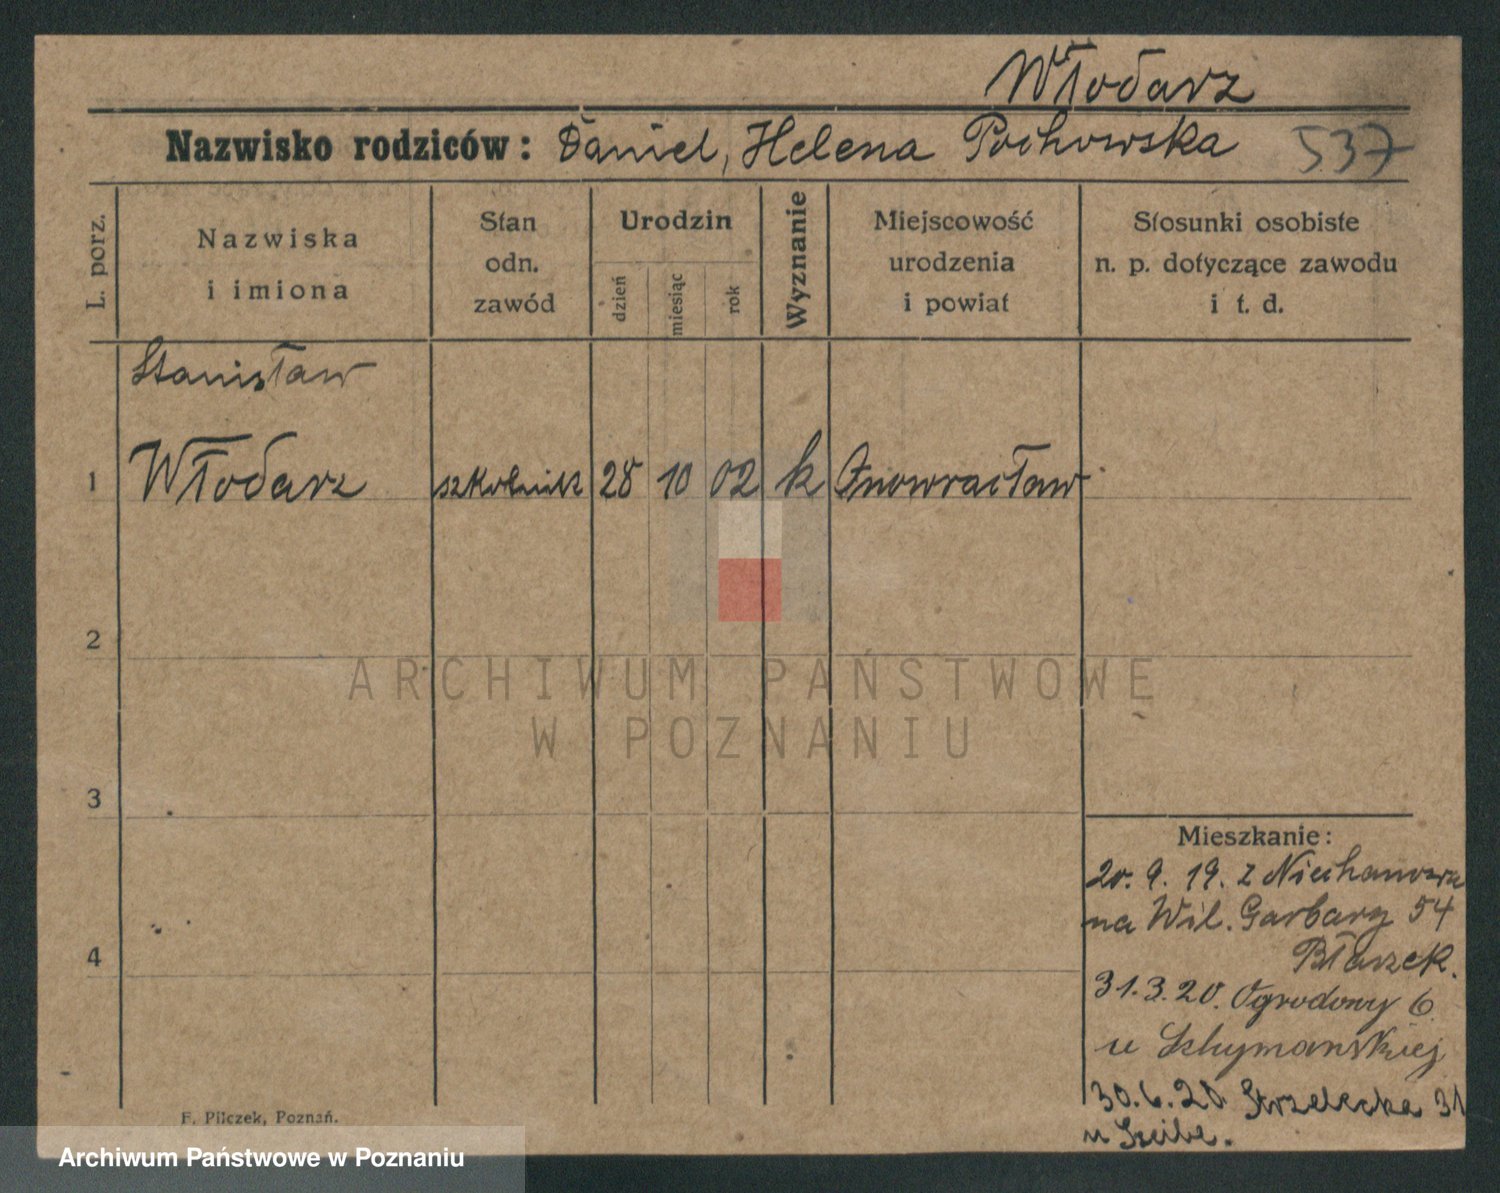 Włodarz
Nazwisko rodziców: Daniel, Helena Pochowska 537
L. porz.
Nazwiska
i imiona
Stan
odn.
zawód
Urodzin
dzień
miesiąc
rok
Wyznanie
Miejscowość
urodzenia
i powiat
Stosunki osobiste
n. p. dotyczące zawodu
i t. d.
Stanisław
1 Włodarz szkolnik 28 10 02 k Inowracław
2
ARCHIWUM PAŃSTWOWE
W POZNANIU
3
Mieszkanie:
20. 9. 19. z Niechanowa
na Wil. Garbary 54
4
Błaszek.
31.3.20. Ogrodowy 6
u Szhymańskiej
30.6.20 Strzelecka 31
u
F. Pilczek, Poznań.
Archiwum Państwowe w Poznaniu